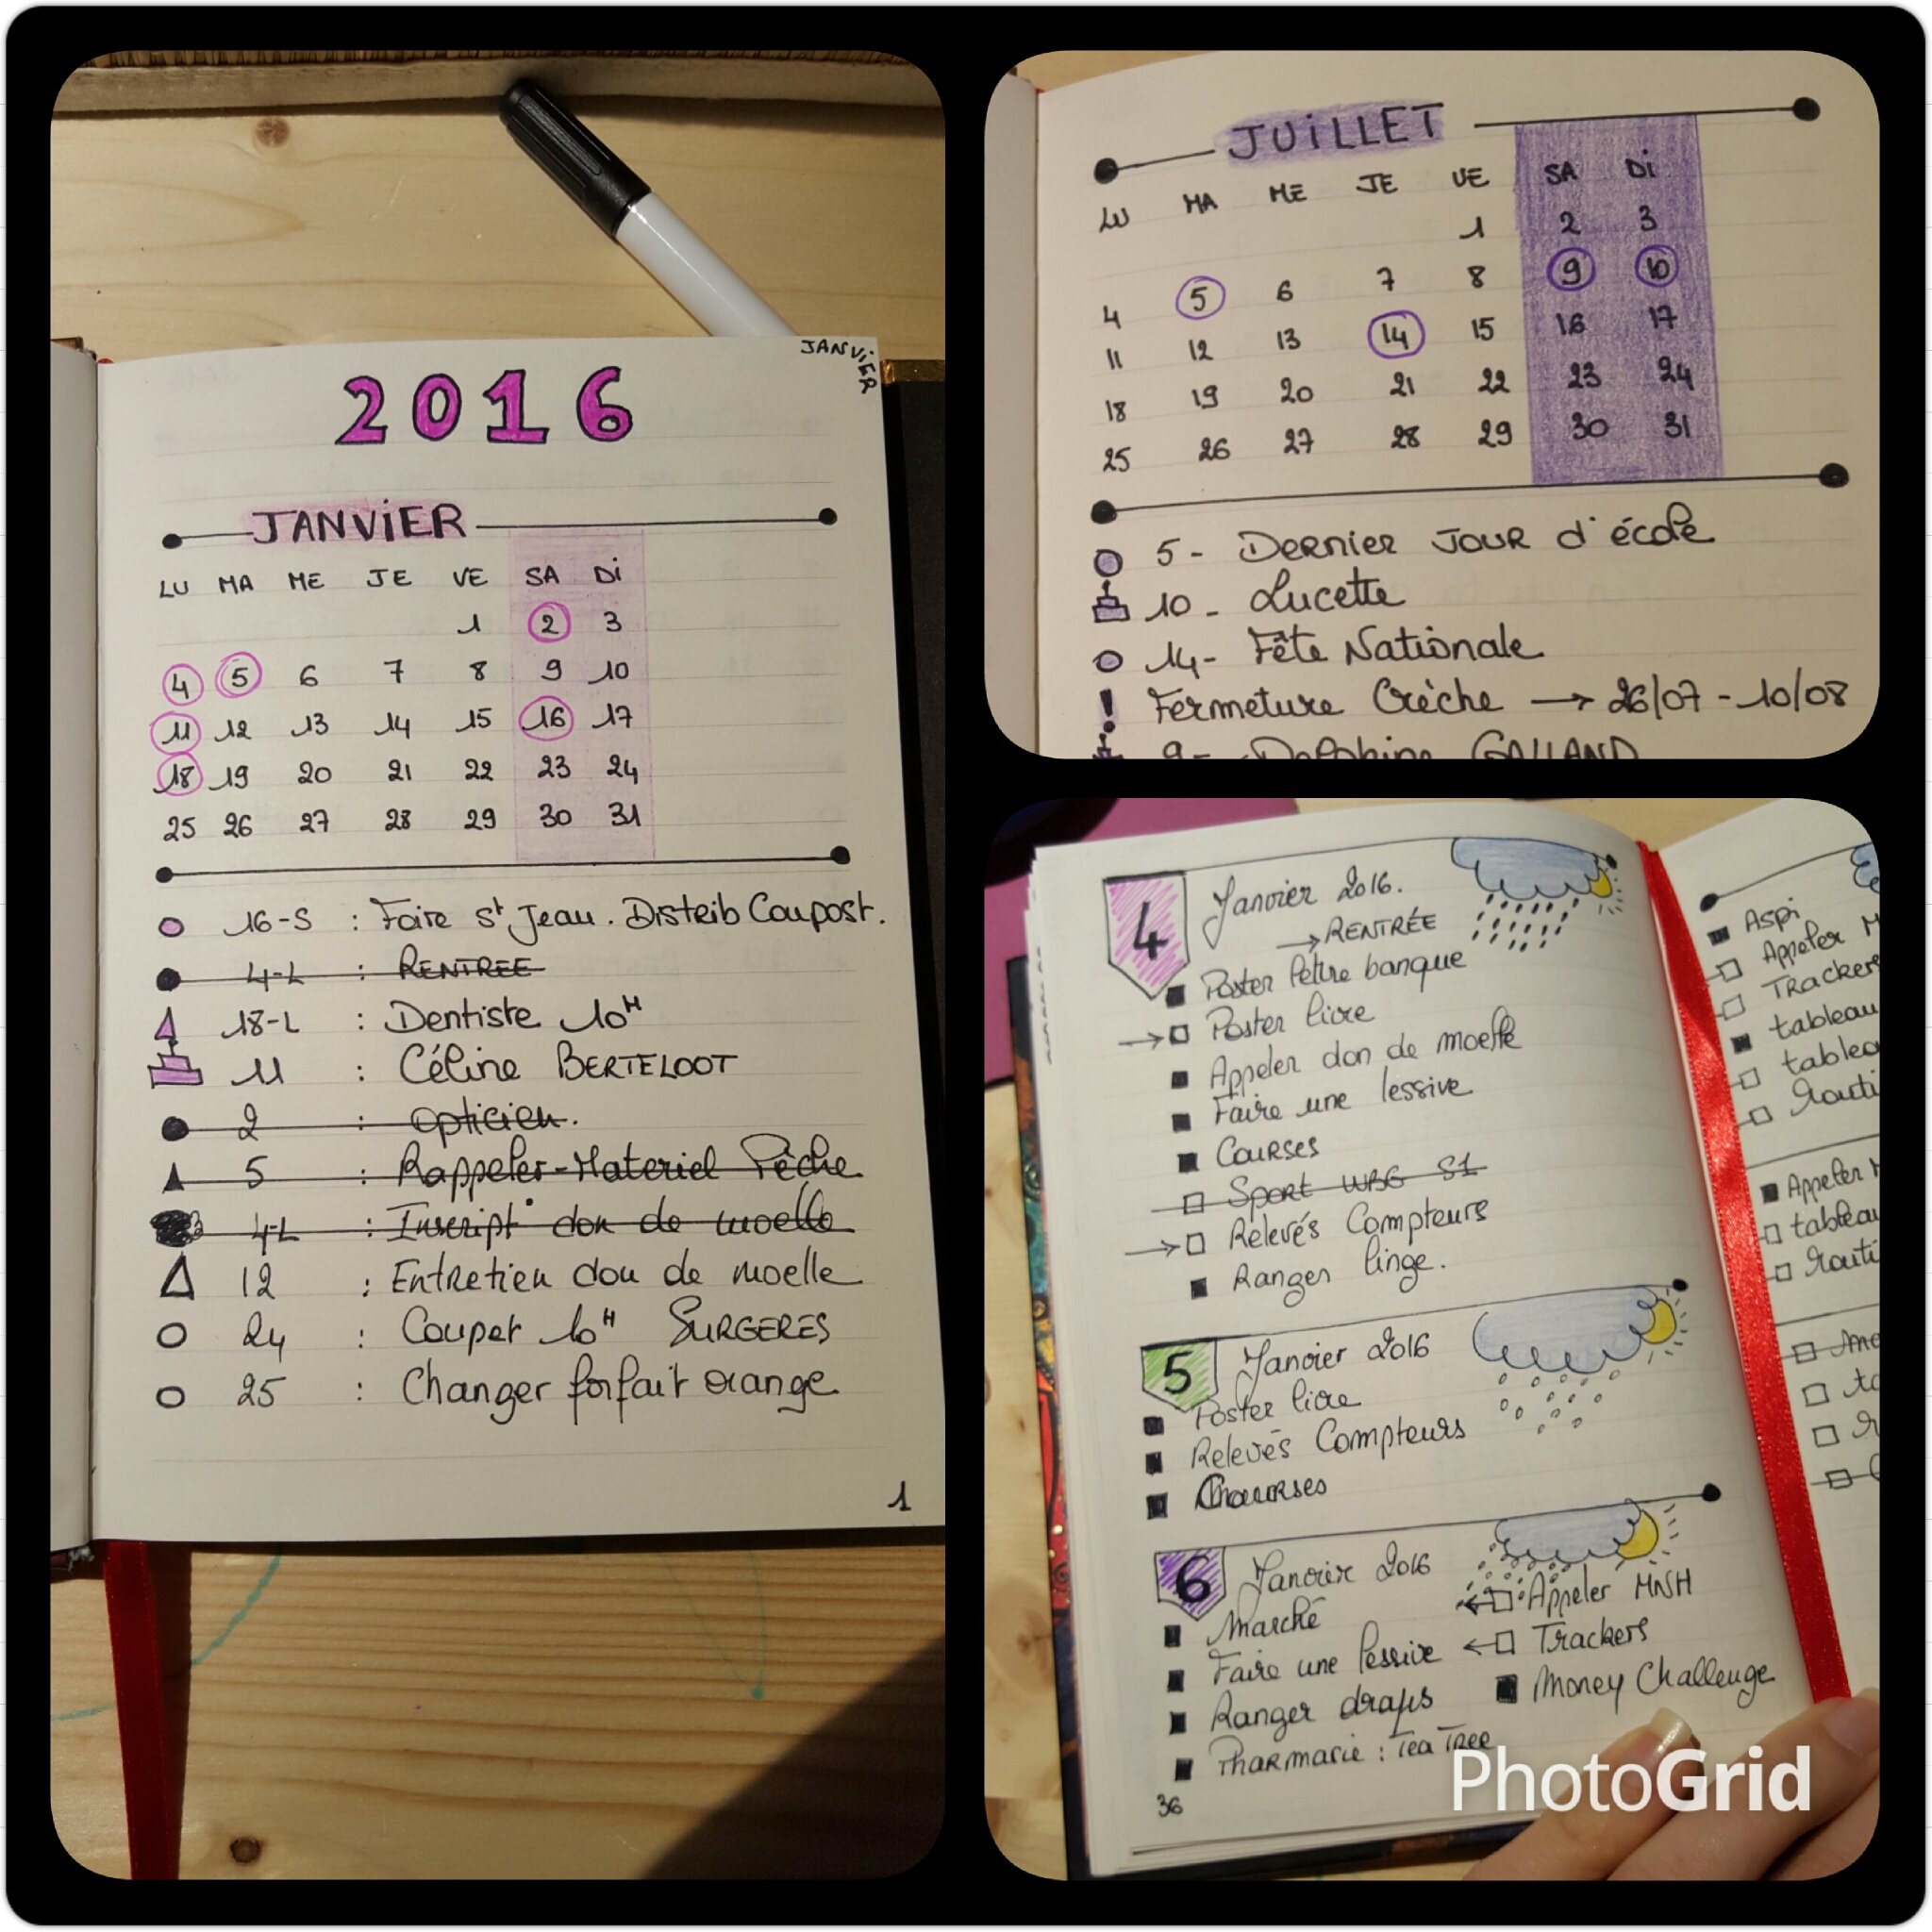 JANVIER
2016
JANVIER
LU MA ME JE VE SA Di
1 2 3
4 5 6 7 8 9 10
11 12 13 14 15 16 17
18 19 20 21 22 23 24
25 26 27 28 29 30 31
16-S : Foire St Jean. Distrib Coupost.
4-L : RENTREE
18-L : Dentiste 10H
11 : Céline BERTELOOT
2 : Opticien.
5 : Rappeler-Materiel Pêche
4-L : Inscript° don de moelle
12 : Entretien don de moelle
24 : Coupet 10H SURGERES
25 : Changer forfait orange
1
JUiLLET
LU MA ME JE VE SA Di
1 2 3
4 5 6 7 8 9 10
11 12 13 14 15 16 17
18 19 20 21 22 23 24
25 26 27 28 29 30 31
5- Dernier JOUR d'école
10- Lucette
14- Fête Nationale
! Fermeture Crèche → 26/07 - 10/08
9- Delphine GALLAND
4 Janvier 2016.
→ RENTRÉE
Poster lettre banque
→ Poster livre
Appeler don de moelle
Faire une lessive
Courses
Sport WBG S1
→ Relevés Compteurs
Ranger linge.
5 Janvier 2016
Poster livre
Relevés Compteurs
6 Janvier 2016
Marché
Faire une lessive
Ranger draps
Pharmacie : Tea Tree
← Appeler MNH
← Trackers
Money Challenge
36
Aspi
Appeler M
Trackers
tableau
tablea
Routi
Appeler M
tableau
Routi
PhotoGrid